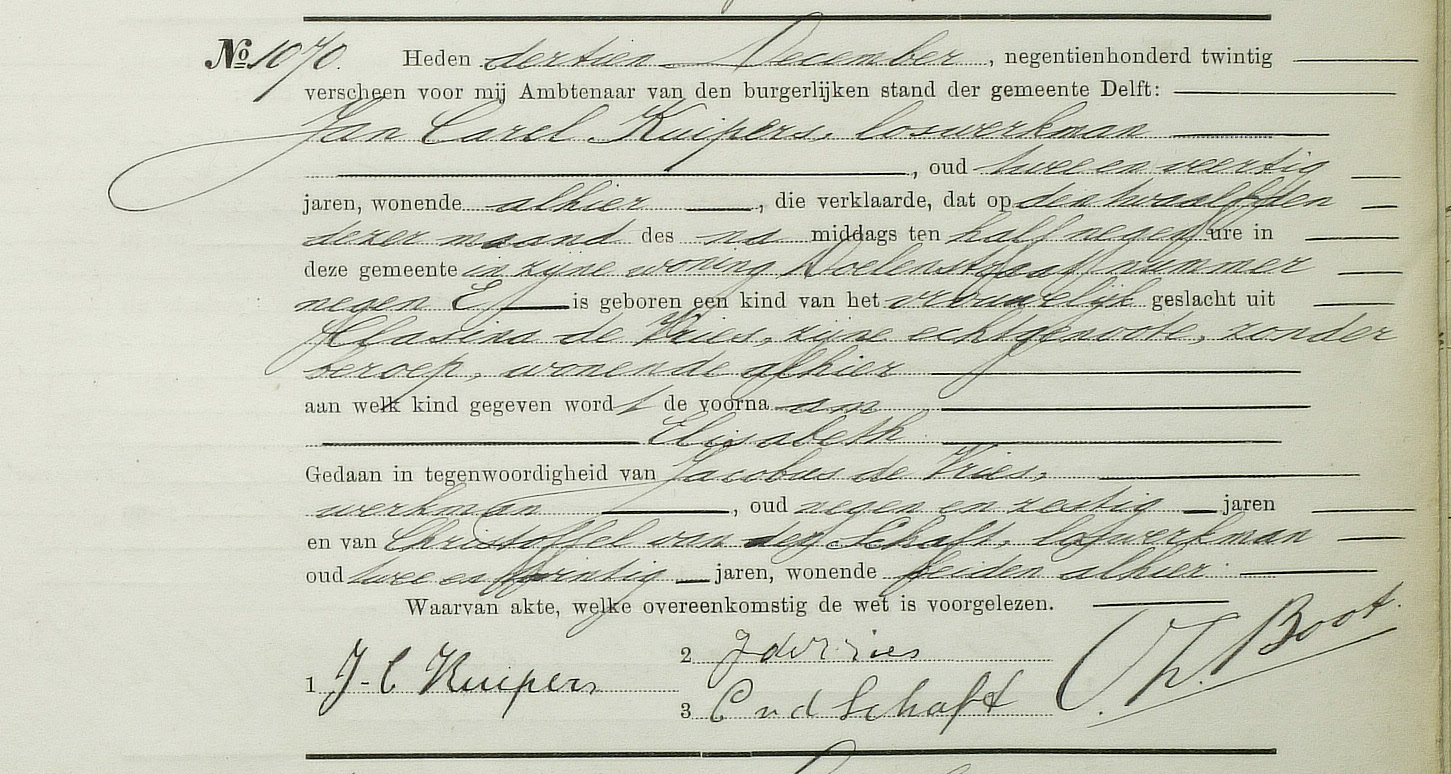 No 1070. Heden dertien December, negentienhonderd twintig
verscheen voor mij Ambtenaar van den burgerlijken stand der gemeente Delft:
Jan Carel Kuipers, loswerkman
, oud twee en veertig
jaren, wonende alhier, die verklaarde, dat op den twaalfden
dezer maand des na middags ten half negen ure in
deze gemeente in zijne woning Doelenstraat nummer
negen E is geboren een kind van het vrouwelijk geslacht uit
Klasina de Vries, zijne echtgenoote, zonder
beroep, wonende alhier
aan welk kind gegeven wordt de voornaam
Elisabeth
Gedaan in tegenwoordigheid van Jacobus de Vries,
werkman, oud negen en zestig jaren
en van Christoffel van der Schaft, loswerkman
oud twee en twintig jaren, wonende beiden alhier.
Waarvan akte, welke overeenkomstig de wet is voorgelezen.
1 J-C Kuipers
2 J de Vries
3 C v d Schaft
Th. Boot.